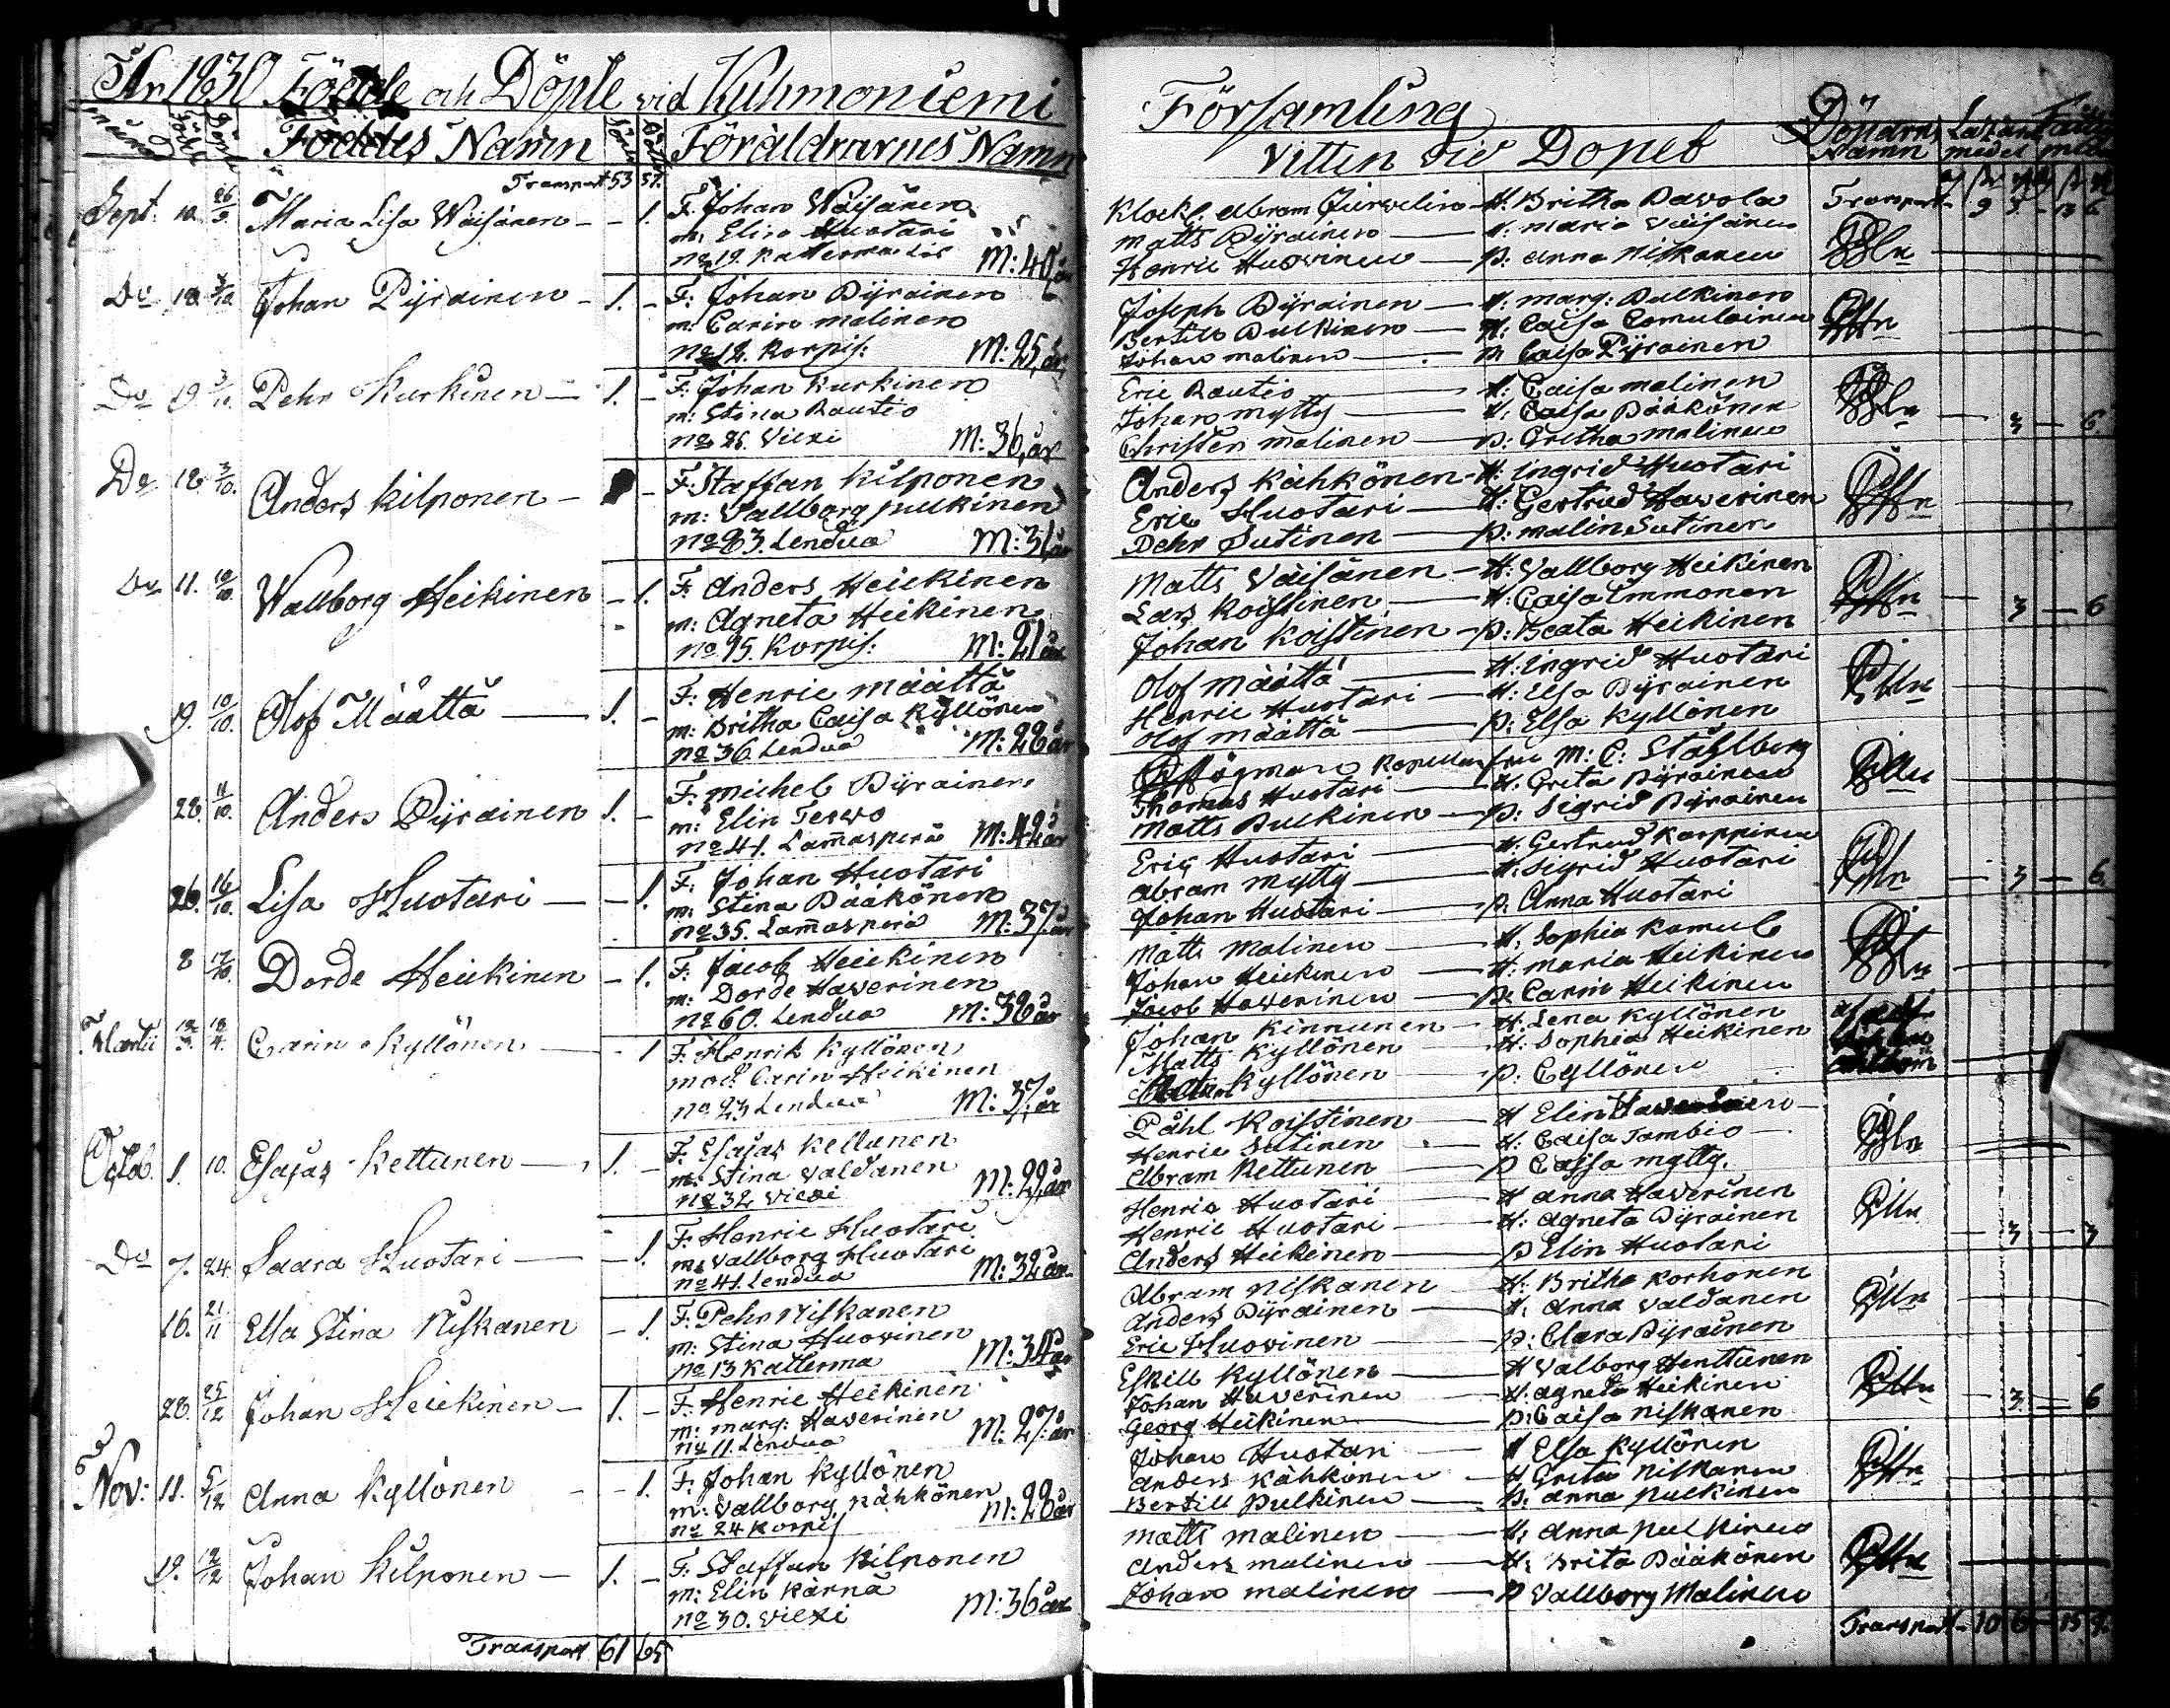 År 1830 Födde och Döpte vid Kuhmoniemi
månad Född Döpt Föddes Namn Föräldrarnes Namn
Transport 53 57.
Sept: 10. 26/9. Maria Lisa Wäisänen — — 1. F: Johan Wäisänen
m: Elin Huotari
no 19. Katterma M: 40 år
Do 18. 3/10 Johan Pyräinen — 1. — F: Johan Pyrainen
m: Carin malinen
no 12. Korpis: M: 25, år
Do 19. 3/10. Pehr Kurkinen — 1. — F: Johan Kurkinen
m: Stina Rautio
no 26. Viexi M: 36, år
Do 18. 3/10. Anders Kilponen — — F: Staffan Kilponen
m: Vallborg pulkinen
no 83. Lendua M: 31, år
Do 11. 10/10 Wallborg Heikinen — 1. F: Anders Heickinen
m: Agneta Heikinen
no 95. Korpis: M: 21 år
19. 10/10. Olof Määttä — 1. — F: Henric määttä
m: Britha Caisa Kyllönen
no 36. Lendua M: 28 år
28. 11/10. Anders Pyrainen 1. — F: michel Pyrainen
m: Elin Terwo
no 41. Lamasperä M: 42 år
26. 16/10. Lisa Huotari — — 1. F: Johan Huotari
m: Stina Pääkönen
no 35. Lamasperä M: 37. år
8 17/10. Dorde Heickinen — 1. F: Jacob Heickinen
m: Dorde Haverinen
no 60. Lendua M: 38 år
Martii 12/3. 18/4. Carin Kyllönen — — 1 F: Henrik Kyllönen
mod: Carin Heikinen
no 23 Lendua M: 37, år
Octob. 1. 10. Esajas Kettunen — 1. — F: Esajas Kettunen
m: Stina Valdanen
no 32 Viexi M: 29, år
Do 7. 24 Saara Huotari — — 1. F: Henric Huotari
m: Vallborg Huotari
no 41. Lendua M: 32 år
16. 21/11 Elsa Stina Niskanen — 1. F: Pehr Niskanen
m: Stina Huovinen
no 13 Katterma M: 34 år
28. 25/12 Johan Heickinen — 1. — F: Henric Heikinen
m: marg: Haverinen
no 11. Lendua M: 27. år
Nov: 11. 5/12 Anna Kyllönen — — 1. F: Johan Kyllönen
m: Vallborg Kähkönen
no 24 Korpis M: 28 år
19. 12/12 Johan Kilponen — 1. — F: Staffan Kilponen
m: Elin Kärnä
no 30. Viexi M: 36 år
Transport 61 65
Församling
Vitten vid Dopet Döparns Namn
Klock. Abram H: Britha Pavola Transport 9 3. 13 6
Matts Pyrainen — H: Maria Väisänen
Henric Huovinen — p: Anna Niskanen
Joseph Pyrainen — H: Marg: Pulkinen
Bertill Pulkinen — H: Caisa Comulainen
Johan malinen — p: Caisa Pyrainen
Eric Rautio — H: Caisa malinen
Johan mytty — H: Caisa Pääkönen
Christer malinen — p: Gretha malinen — 3 — 6.
Anders Kähkönen — H: Ingrid Huotari
Eric Huotari — H: Gertrud Haverinen
Pehr Sutinen — p: malin Sutinen
Matts Väisänen — H: Vallborg Heikinen
Lars Koistinen — H: Caisa Immonen
Johan Koistinen — p: Beata Heikinen — 3 — 6
Olof määttä — H: Ingrid Huotari
Henric Huotari — H: Elsa Pyrainen
Olof määttä — p: Elsa Kyllönen
Högman Kapellan fru M: C: Ståhlberg
Thomas Huotari — H: Greta Pyrainen
Matts Pulkinen — p: Sigrid Pyrainen
Eric Huotari — H: Gertrud Karppinen
Abram mytty — H: Sigrid Huotari
Johan Huotari — p: Anna Huotari — 3 — 6.
Matts Malinen — H: Sophia Kamul
Johan Heickinen — H: Maria Heikinen
Jacob Haverinen — p: Carin Heikinen
Johan Kinnunen — H: Lena Kyllönen
Matts Kyllönen — H: Sophia Heikinen
Kyllönen — p: Cyllönen
Påhl Koistinen — H Elin Haverinen
Henric Sutinen — H: Caisa Tambio
Abram Kettunen — p Caisa mytty.
Henric Huotari — H Anna Haverinen
Henric Huotari — H: Agneta Pyrainen
Anders Heikinen — p Elin Huotari — 3 — 3
Abram Niskanen — H: Britha Korhonen
Anders Pyrainen — H: Anna Valdanen
Eric Huovinen — p: Clara Pyrainen
Eskill Kyllönen — H Valborg Henttunen
Johan Haverinen — H: Agneta Heikinen
Georg Heikinen — p: Caisa Niskanen — 3 — 6
Johan Huotari — H Elsa Kyllönen
Anders Kähkönen — H Greta Niskanen
Bertill Pulkinen — p: Anna Pulkinen
Matts Malinen — H: Anna Pulkinen
Anders malinen — H: Brita Pääkönen
Johan malinen — p Vallborg Malinen
Transport — 10 6 — 15 9.